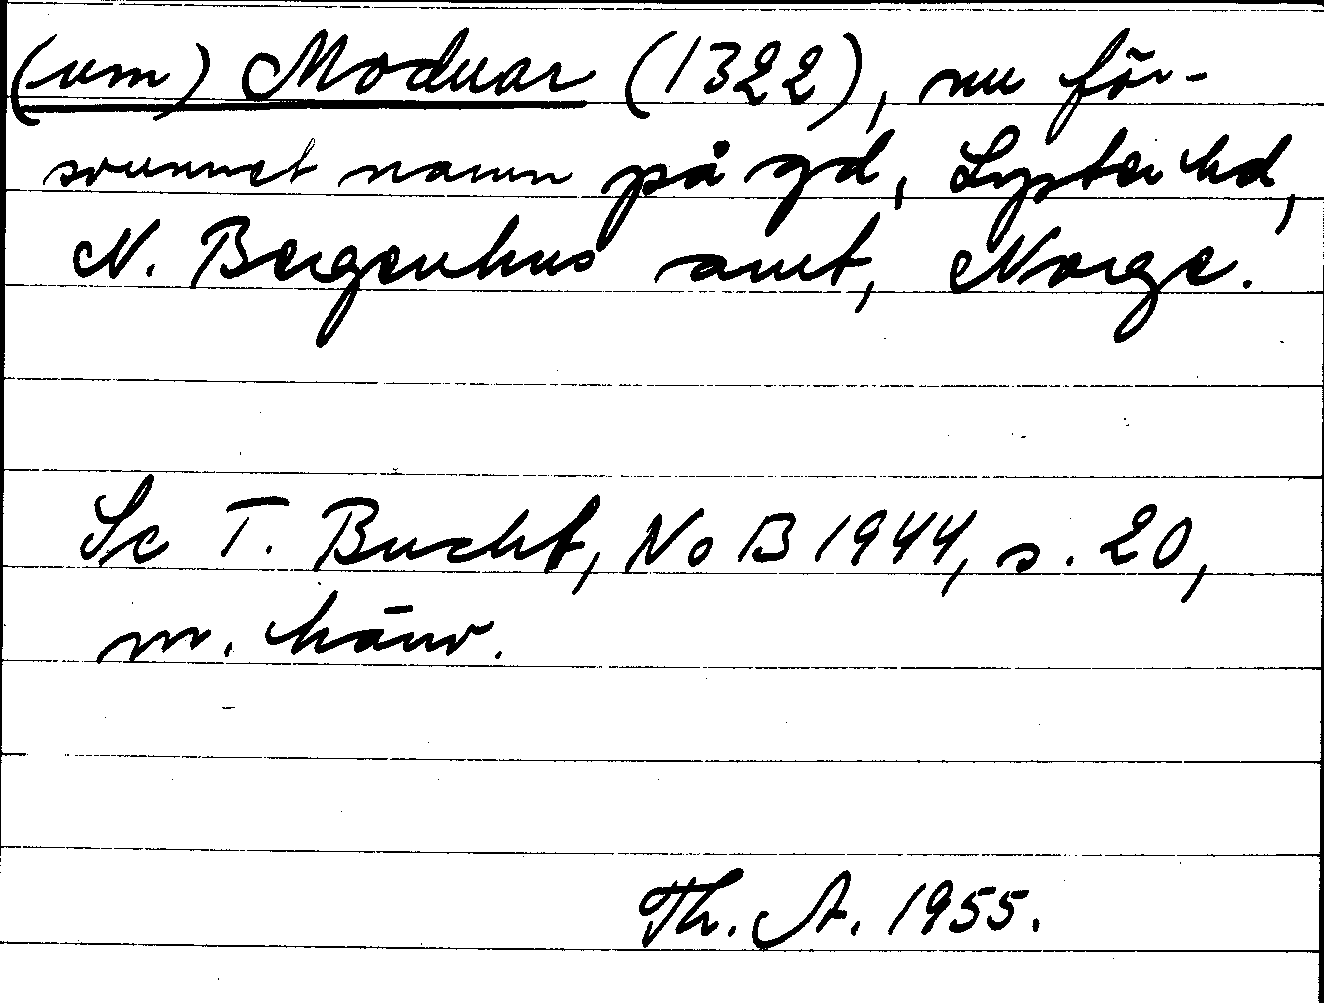 (um) Moduar (1322), nu för-
svunnet namn på gd, Lyster hd,
N. Bergenhus amt, Norge.
Se T. Bucht, NoB 1944, s. 20,
m. hänv.
Th. A. 1955.